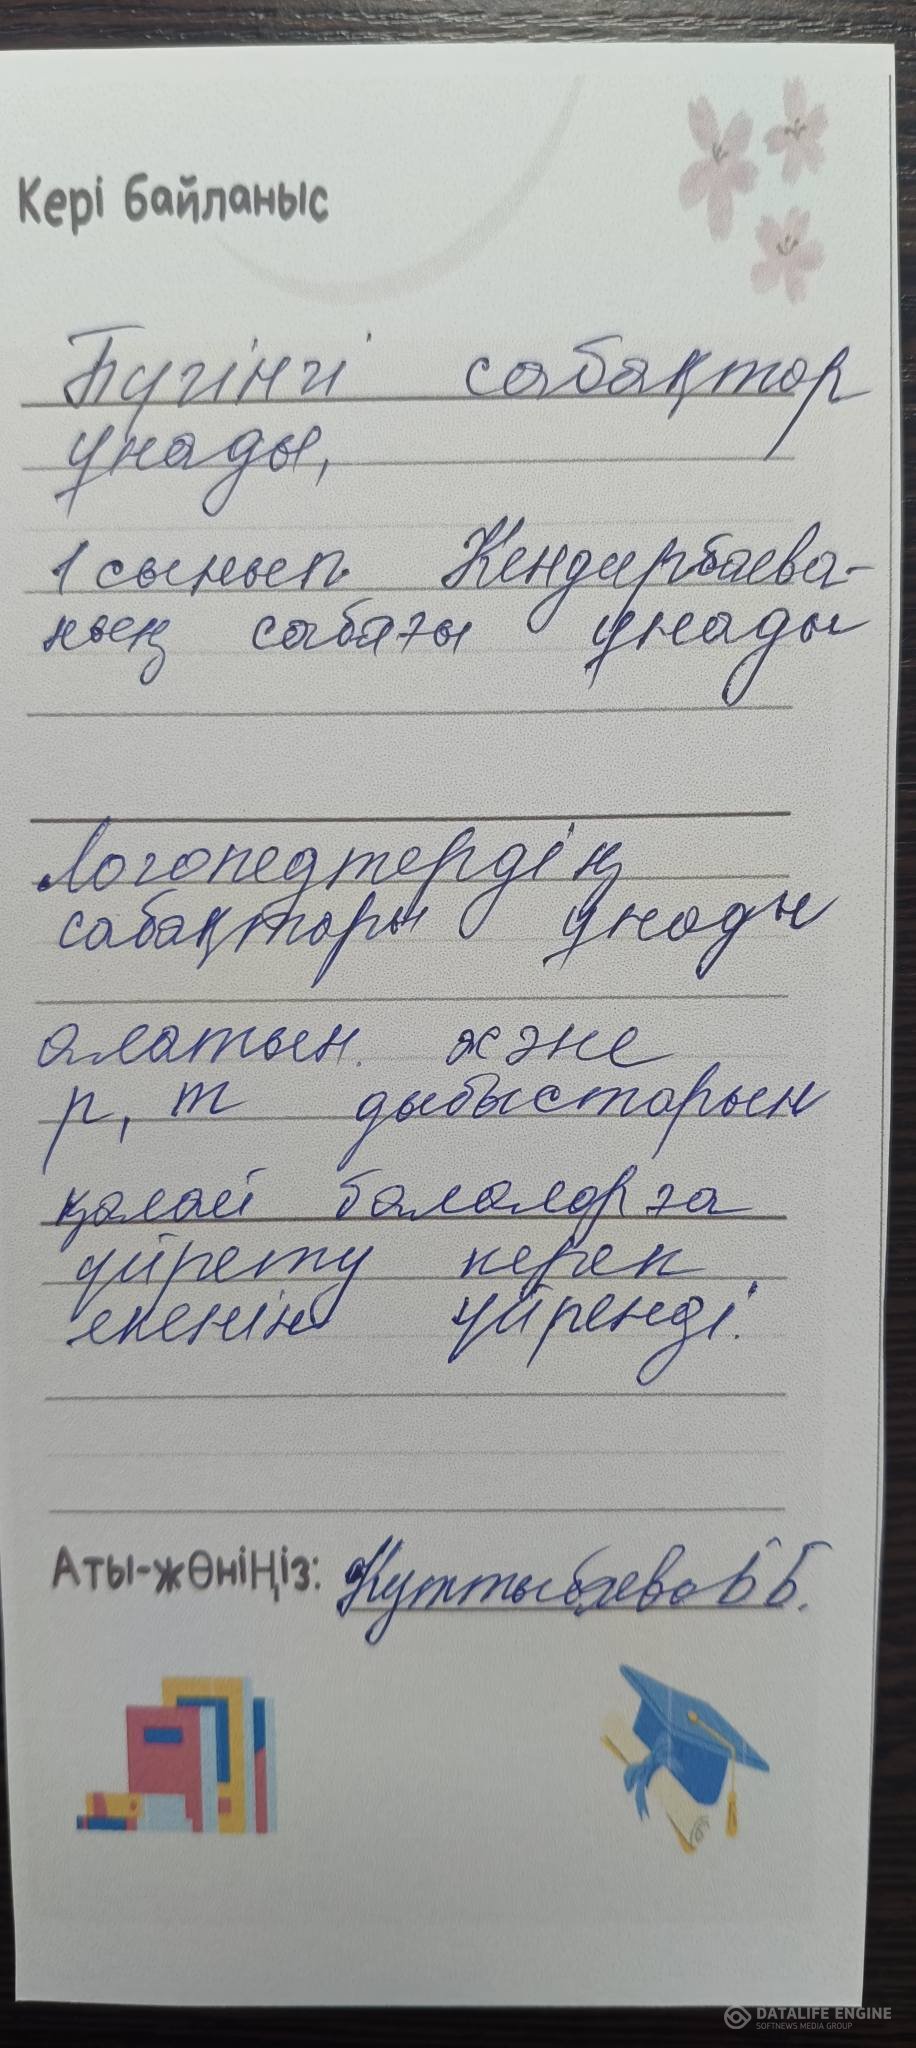 Кері байланыс
Бүгінгі сабақтар
ұнады,
1 сынып Кендирбаева-
ның сабағы ұнады
Логопедтердің
сабақтары ұнады
алатын. және
р, т дыбыстарын
қалай балаларға
үйрету керек
екенін үйренді.
Аты-жөніңіз: Куттыбаева Б Б.
DATALIFE ENGINE
SOFTNEWS MEDIA GROUP